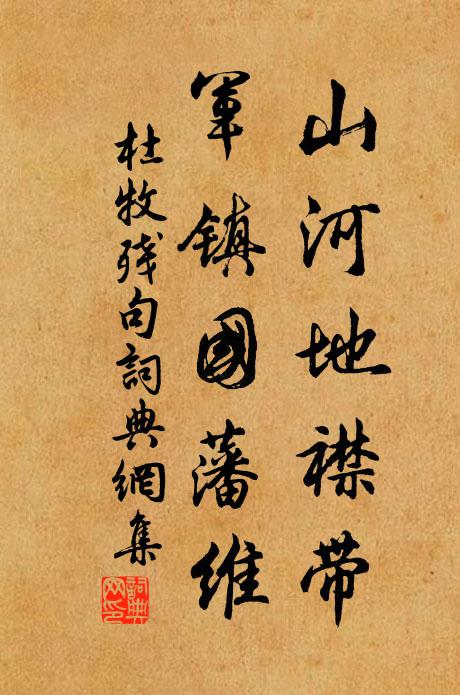 山河地襟带
軍镇國藩維
杜牧残句詞典網集
詞典网印